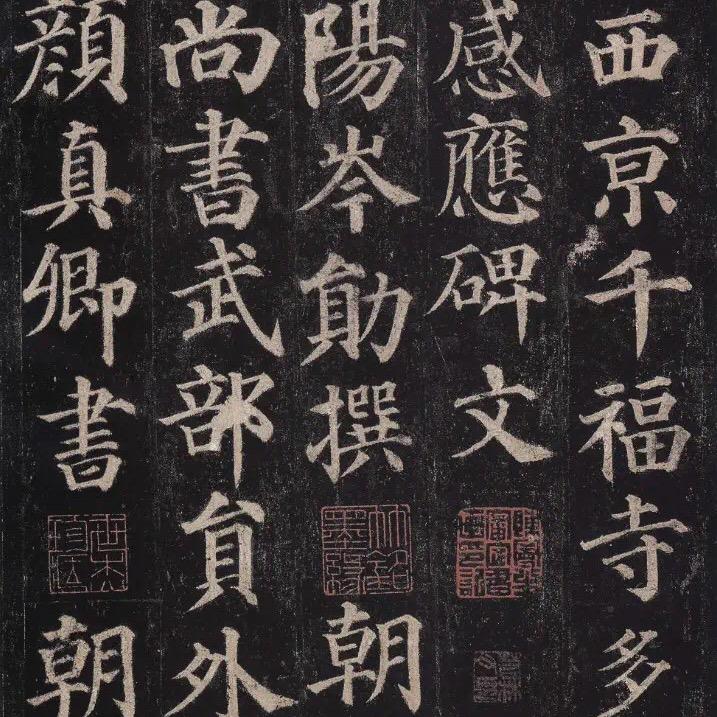 西京千福寺多
感應碑文
陽岑勛撰朝
尚書武部員外
顏真卿書朝